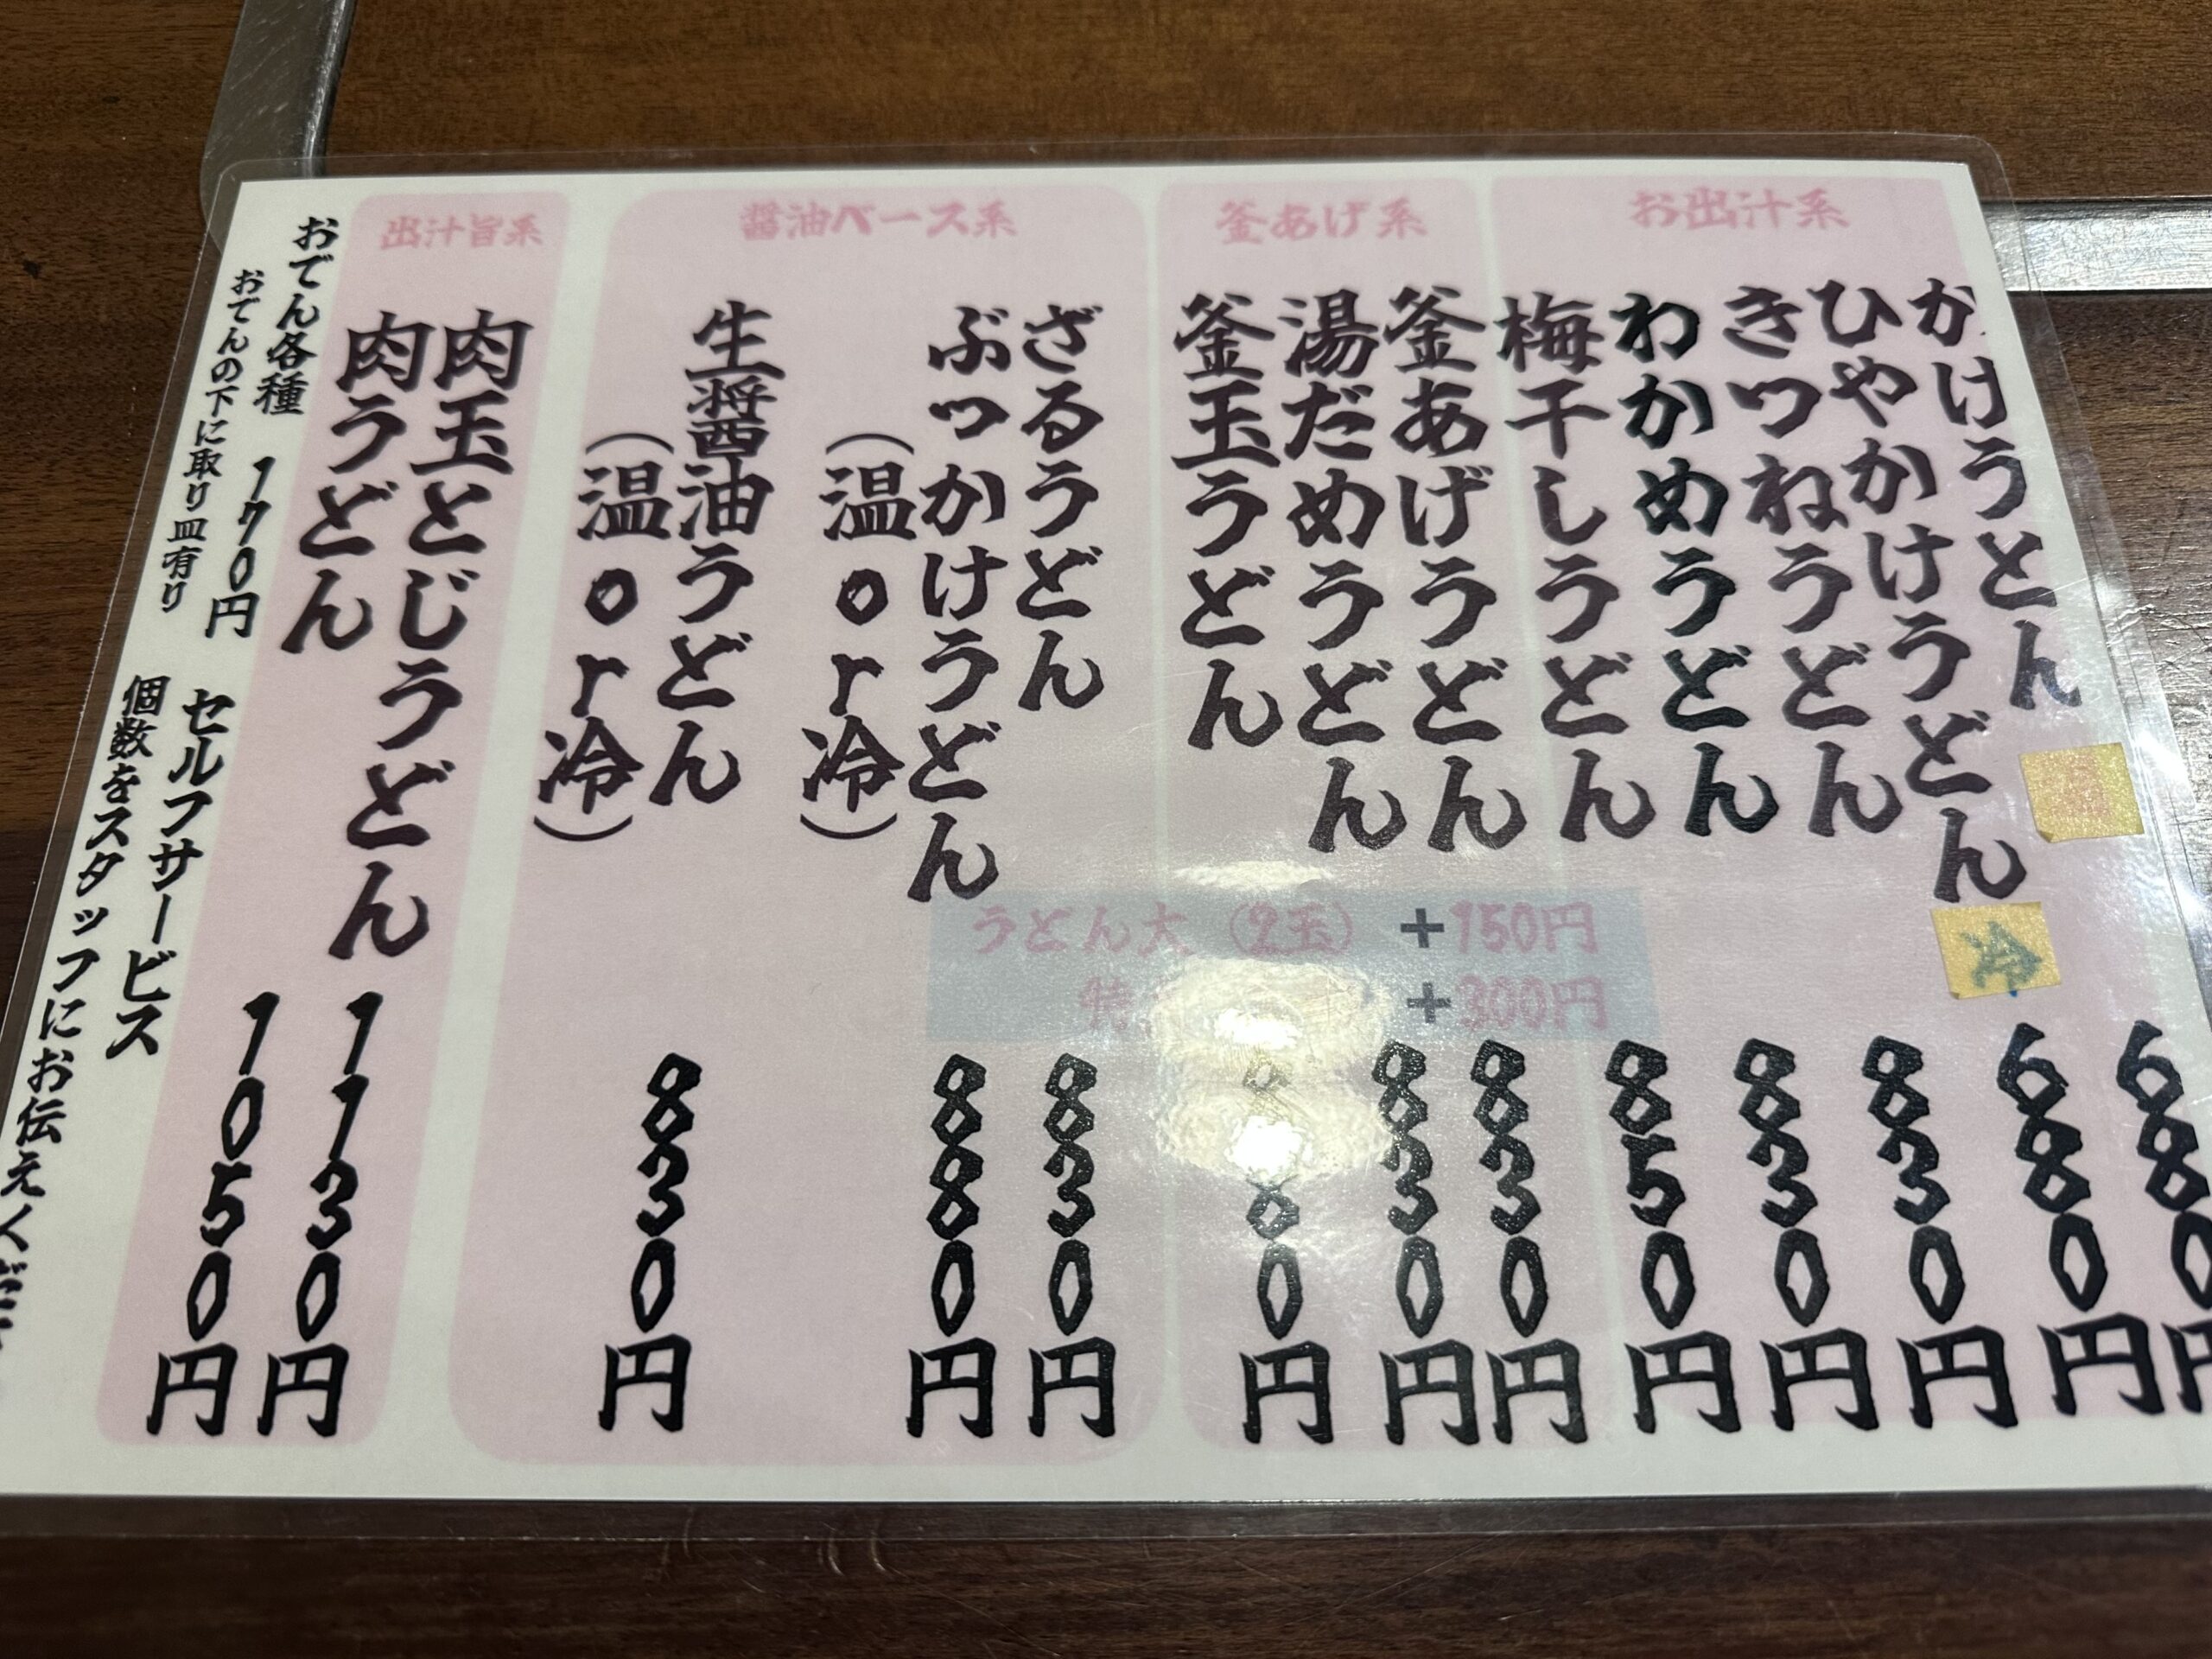 お出汁系
かけうどん 680円
ひやかけうどん 冷 680円
きつねうどん 830円
わかめうどん 830円
梅干しうどん 850円
釜あげ系
釜あげうどん 830円
湯だめうどん 830円
釜玉うどん 880円
うどん大（2玉） +150円
特 +300円
醤油ベース系
ざるうどん 830円
ぶっかけうどん 880円
（温or冷）
生醤油うどん 830円
（温or冷）
出汁旨系
肉玉とじうどん 1130円
肉うどん 1050円
おでん各種 170円 セルフサービス
おでんの下に取り皿有り 個数をスタッフにお伝えくだ